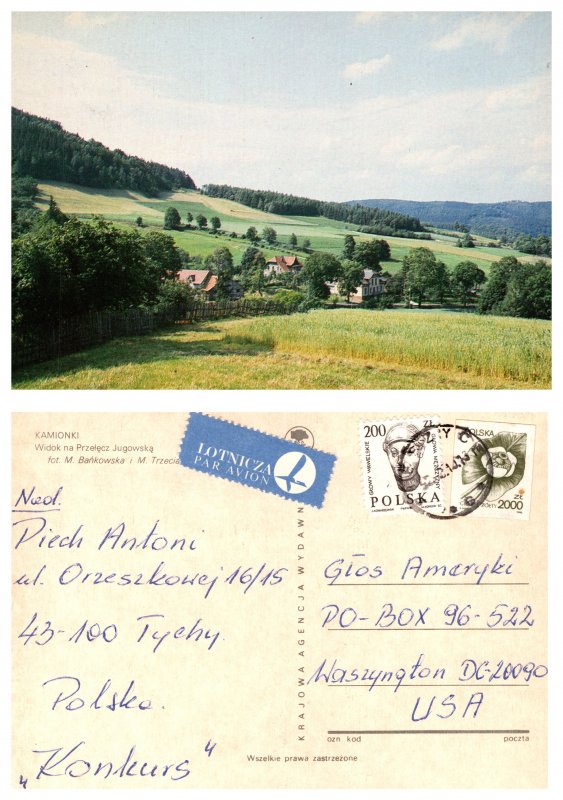 KAMIONKI
Widok na Przełęcz Jugowską
fot. M. Bańkowska i M. Trzecia
LOTNICZA
PAR AVION
200 ZŁ
POLSKA
POLSKA
ZŁ
2000
TYCHY
Niedl.
Piech Antoni
ul. Orzeszkowej 16/15
43-100 Tychy.
Polska.
„Konkurs"
KRAJOWA AGENCJA WYDAWN
Głos Ameryki
PO-BOX 96-522
Waszyngton DC-20090
USA
ozn kod poczta
Wszelkie prawa zastrzeżone